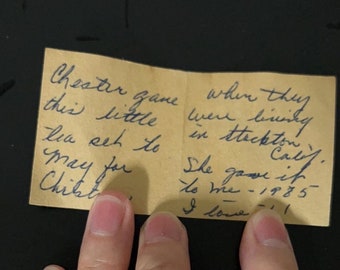 Chester gave
this little
tea set to
May for
Christ
when they
were living
in Stockton
Calif.
She gave it
to me - 1985
I love